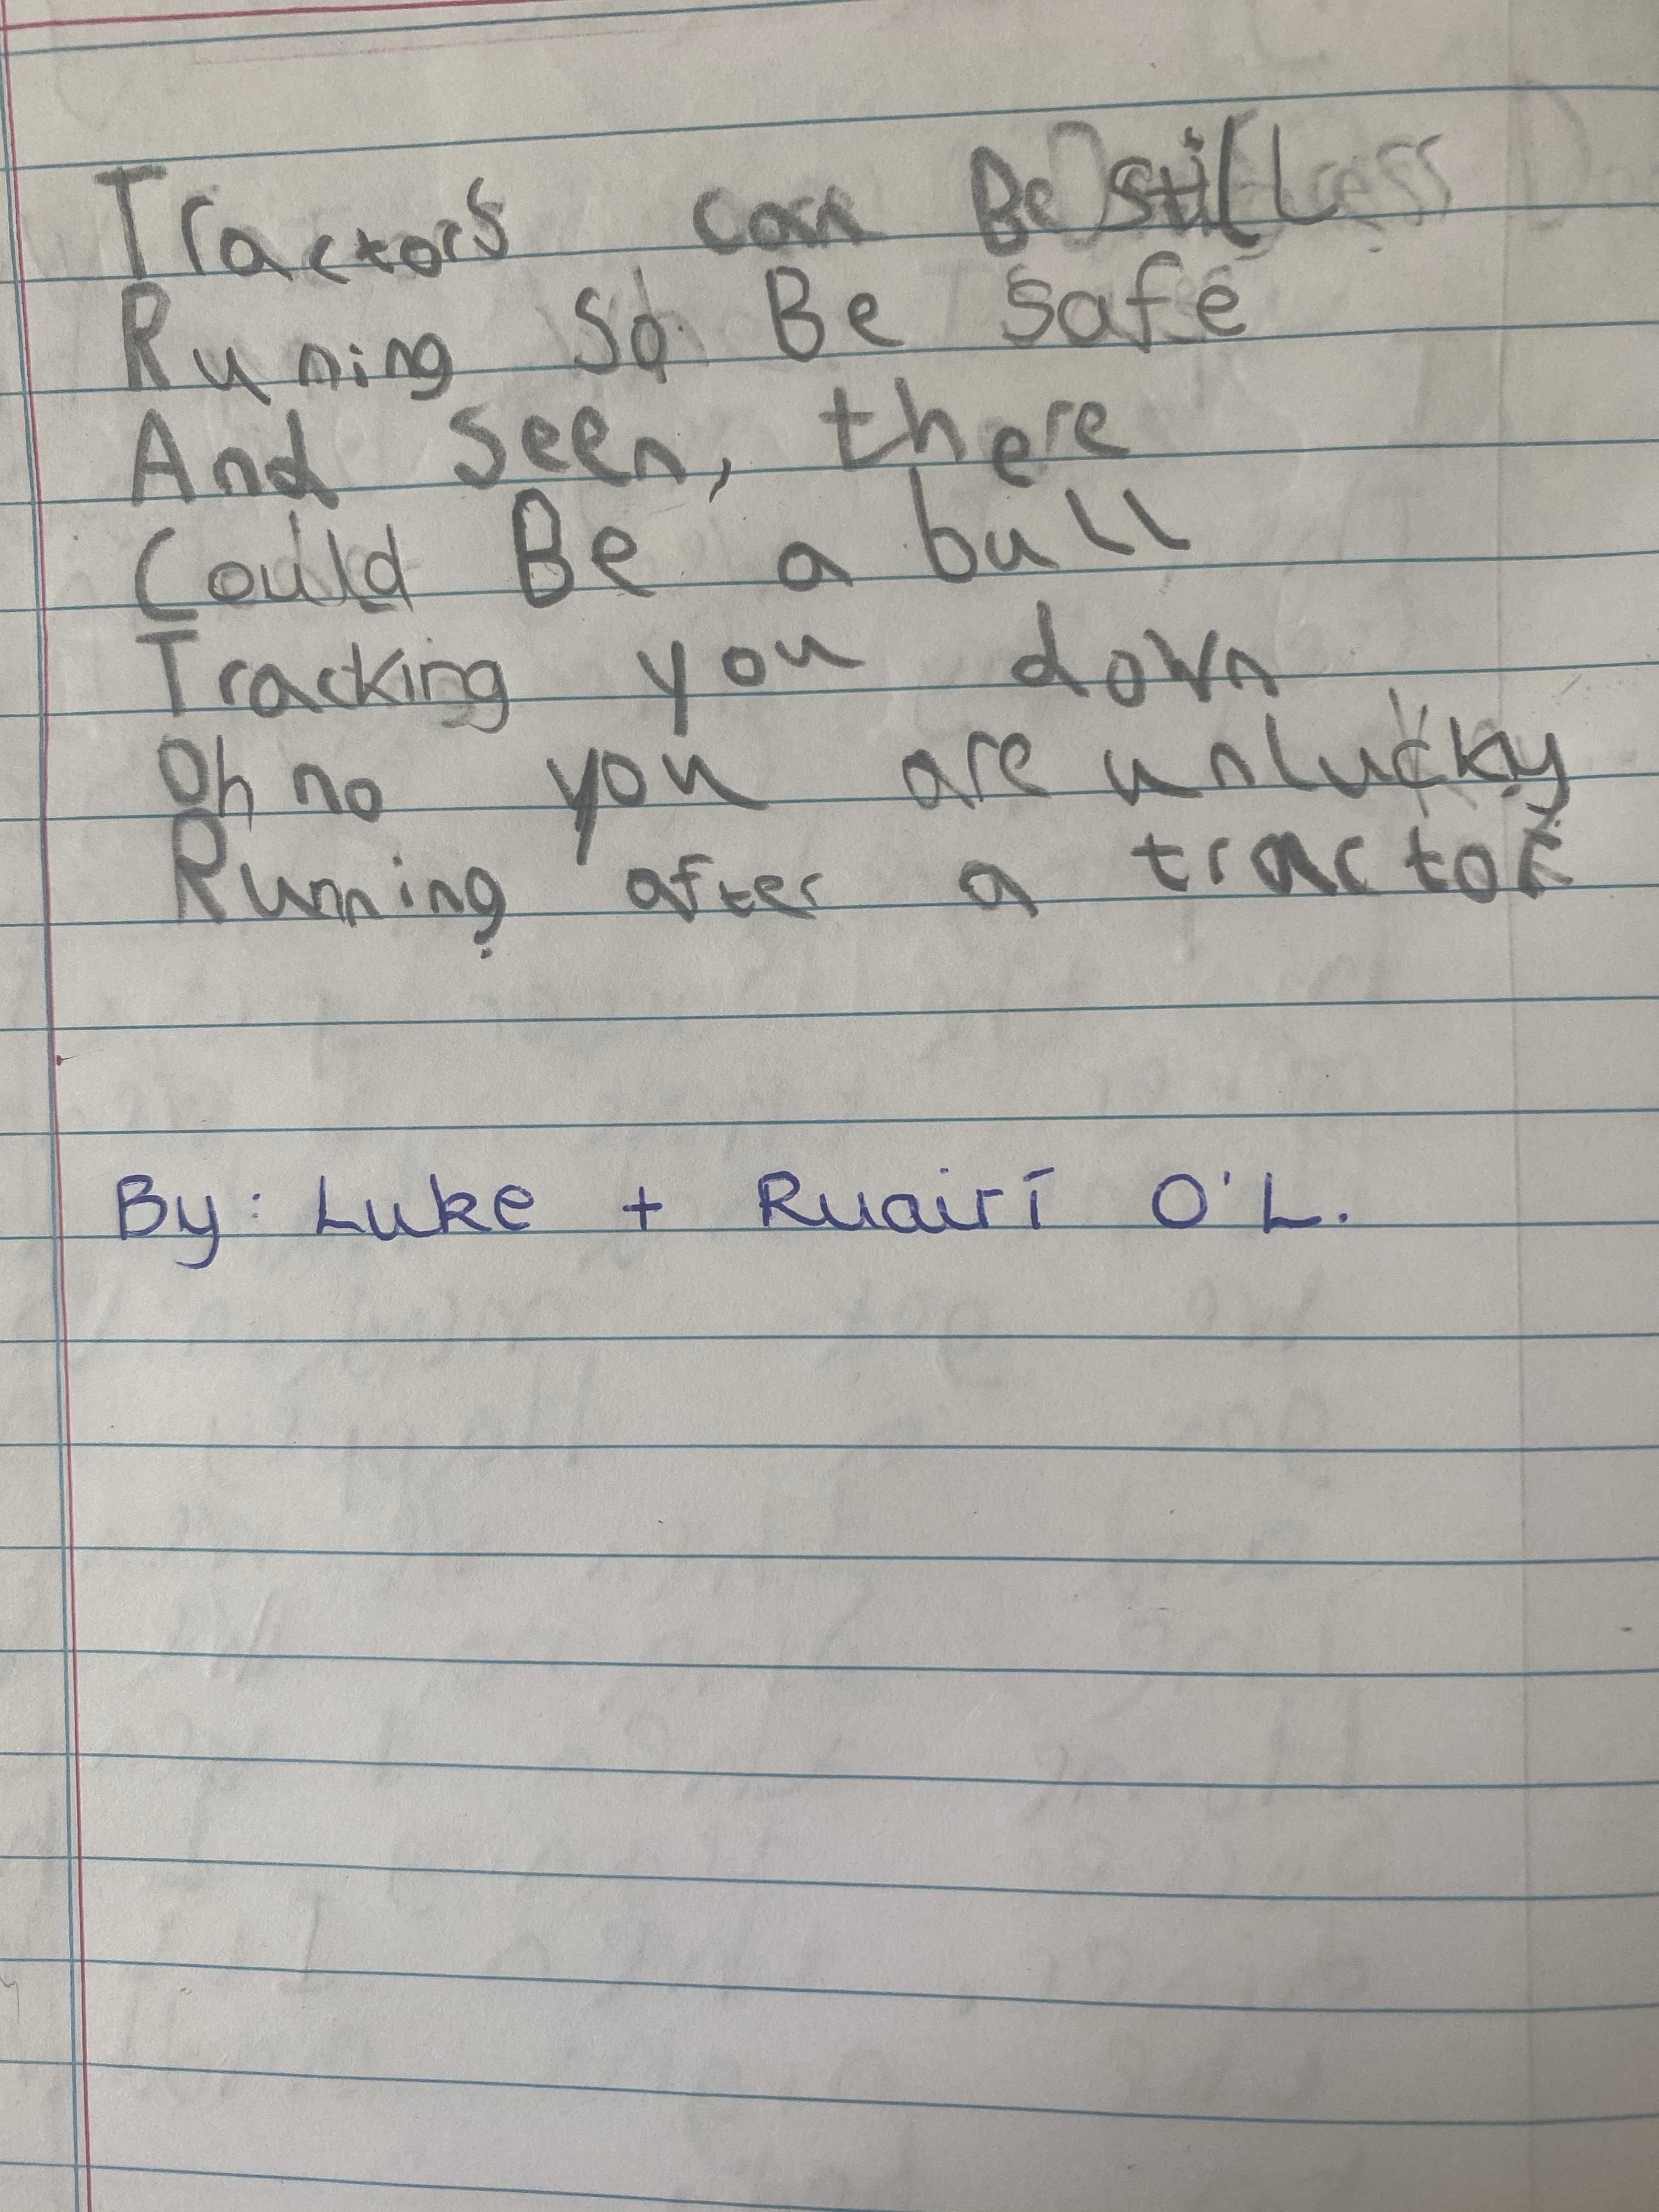 Tractors can Be still
Runing So Be safe
And seen, there
Could Be a bull
Tracking you down
Oh no you are unlucky
Running after a tractor
By: Luke + Ruairí O'L.